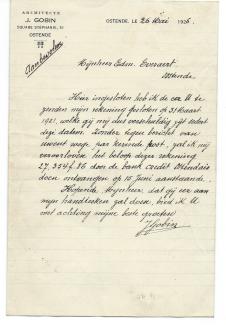 ARCHITECTE
J. GOBIN
SQUARE STÉPHANIE, 10
OSTENDE
OSTENDE, LE 26 Mei 1926.
Aanbevolen
Mijnheer Edm. Everaert
Ostende
Hier ingesloten heb ik de eer U te
zenden mijn rekening gesloten op 31 Maart
1921, welke gij mij dus verschuldig zijt sedert
deze datum. Zonder tegen bericht van
uwent weg, per keerende post, zal ik mij
veroorloven het beloop dezer rekening
27,354 f. 86 door de bank crédit Ostendais
doen ontvangen op 15 Juni aanstaande.
Hopende, Mijnheer, dat gij eer aan
mijn handteeken zal doen, bied ik U
met achting mijne beste groeten
J Gobin